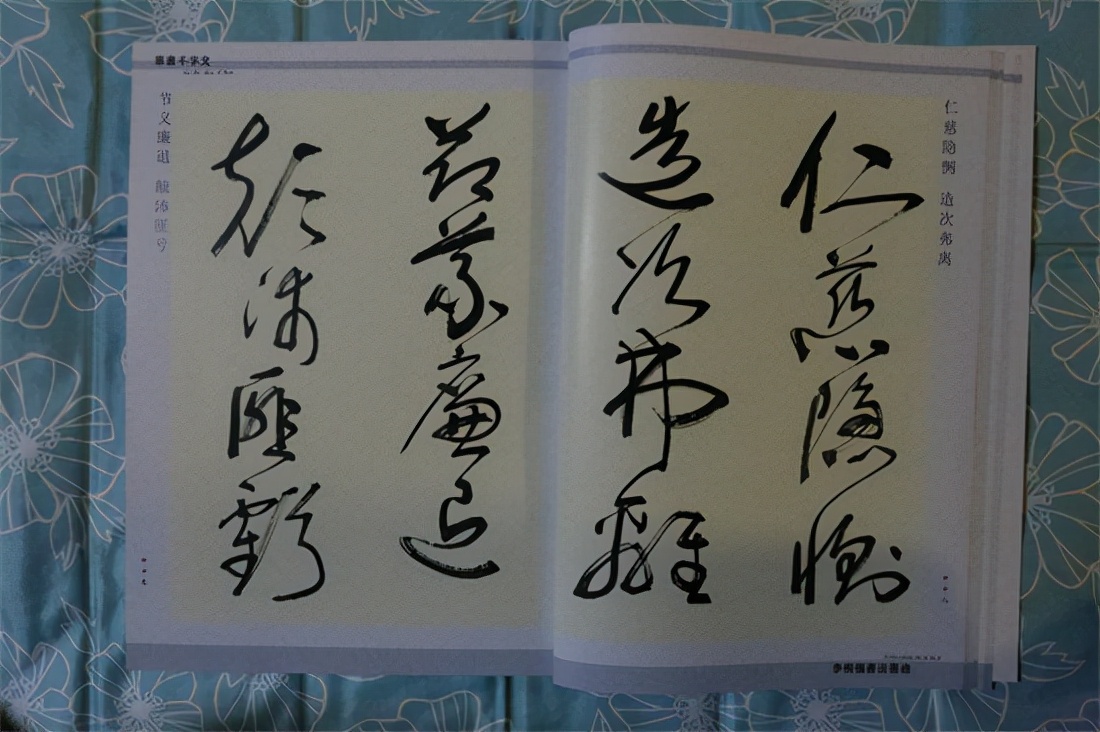 仁慈隐恻
造次弗離
节義廉退
顛沛匪虧
仁慈隐恻 造次弗离
节义廉退 颠沛匪亏
草書千字文